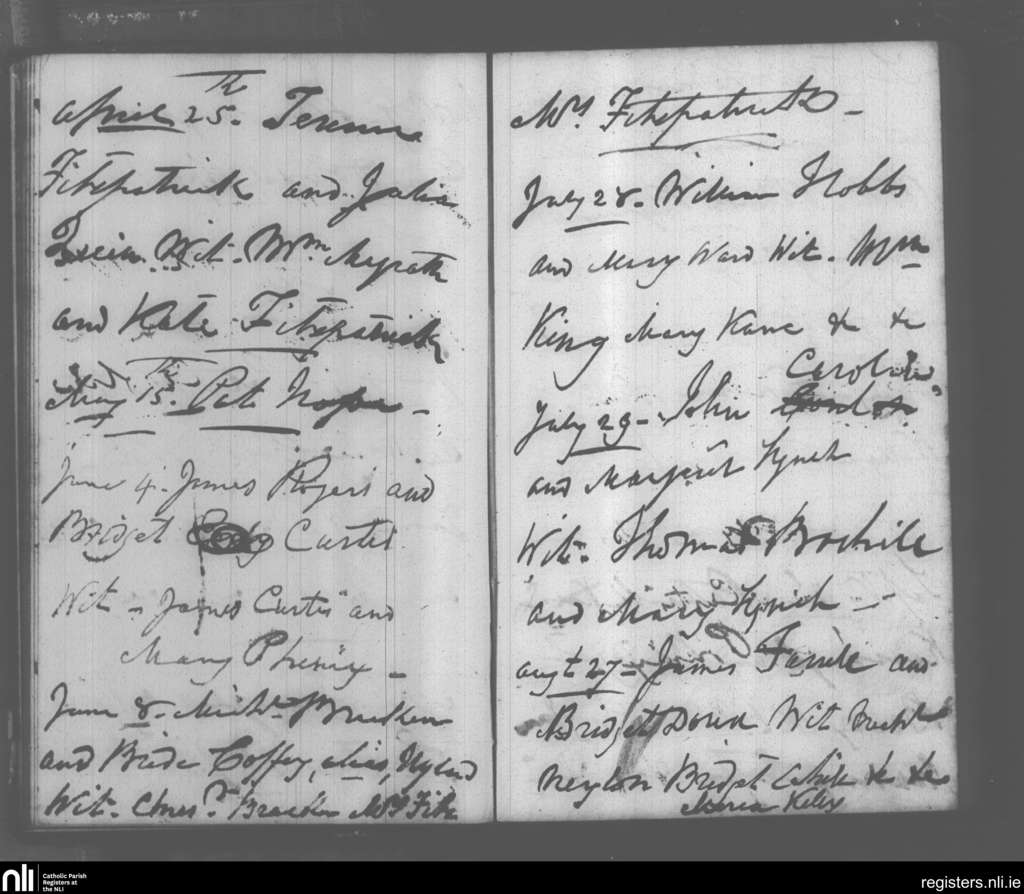 April 25th. Terence
Fitzpatrick and Julia
Wit. Wm. Magrath
and Kate Fitzpatrick
May 15th. Pat
June 4. James Rogers and
Bridget Curtis
Wit - James Curtis and
Mary Phenix -
June 8. Michl. Bracken
and Bride Coffey, alias, Hyland
Wit. Bracken Mrs Fitz
Mrs Fitzpatrick -
July 28. William Hobbs
and Mary Ward Wit. Wm
King Mary Kane & &
Carolin
July 29 - John
and Margaret Lynch
Wit. Thomas
and Mary Lynch -
augt 27 - James Farrell and
Bridget Wit
Bridget & &
Maria Kelly
nli
Catholic Parish
Registers at
the NLI
registers.nli.ie